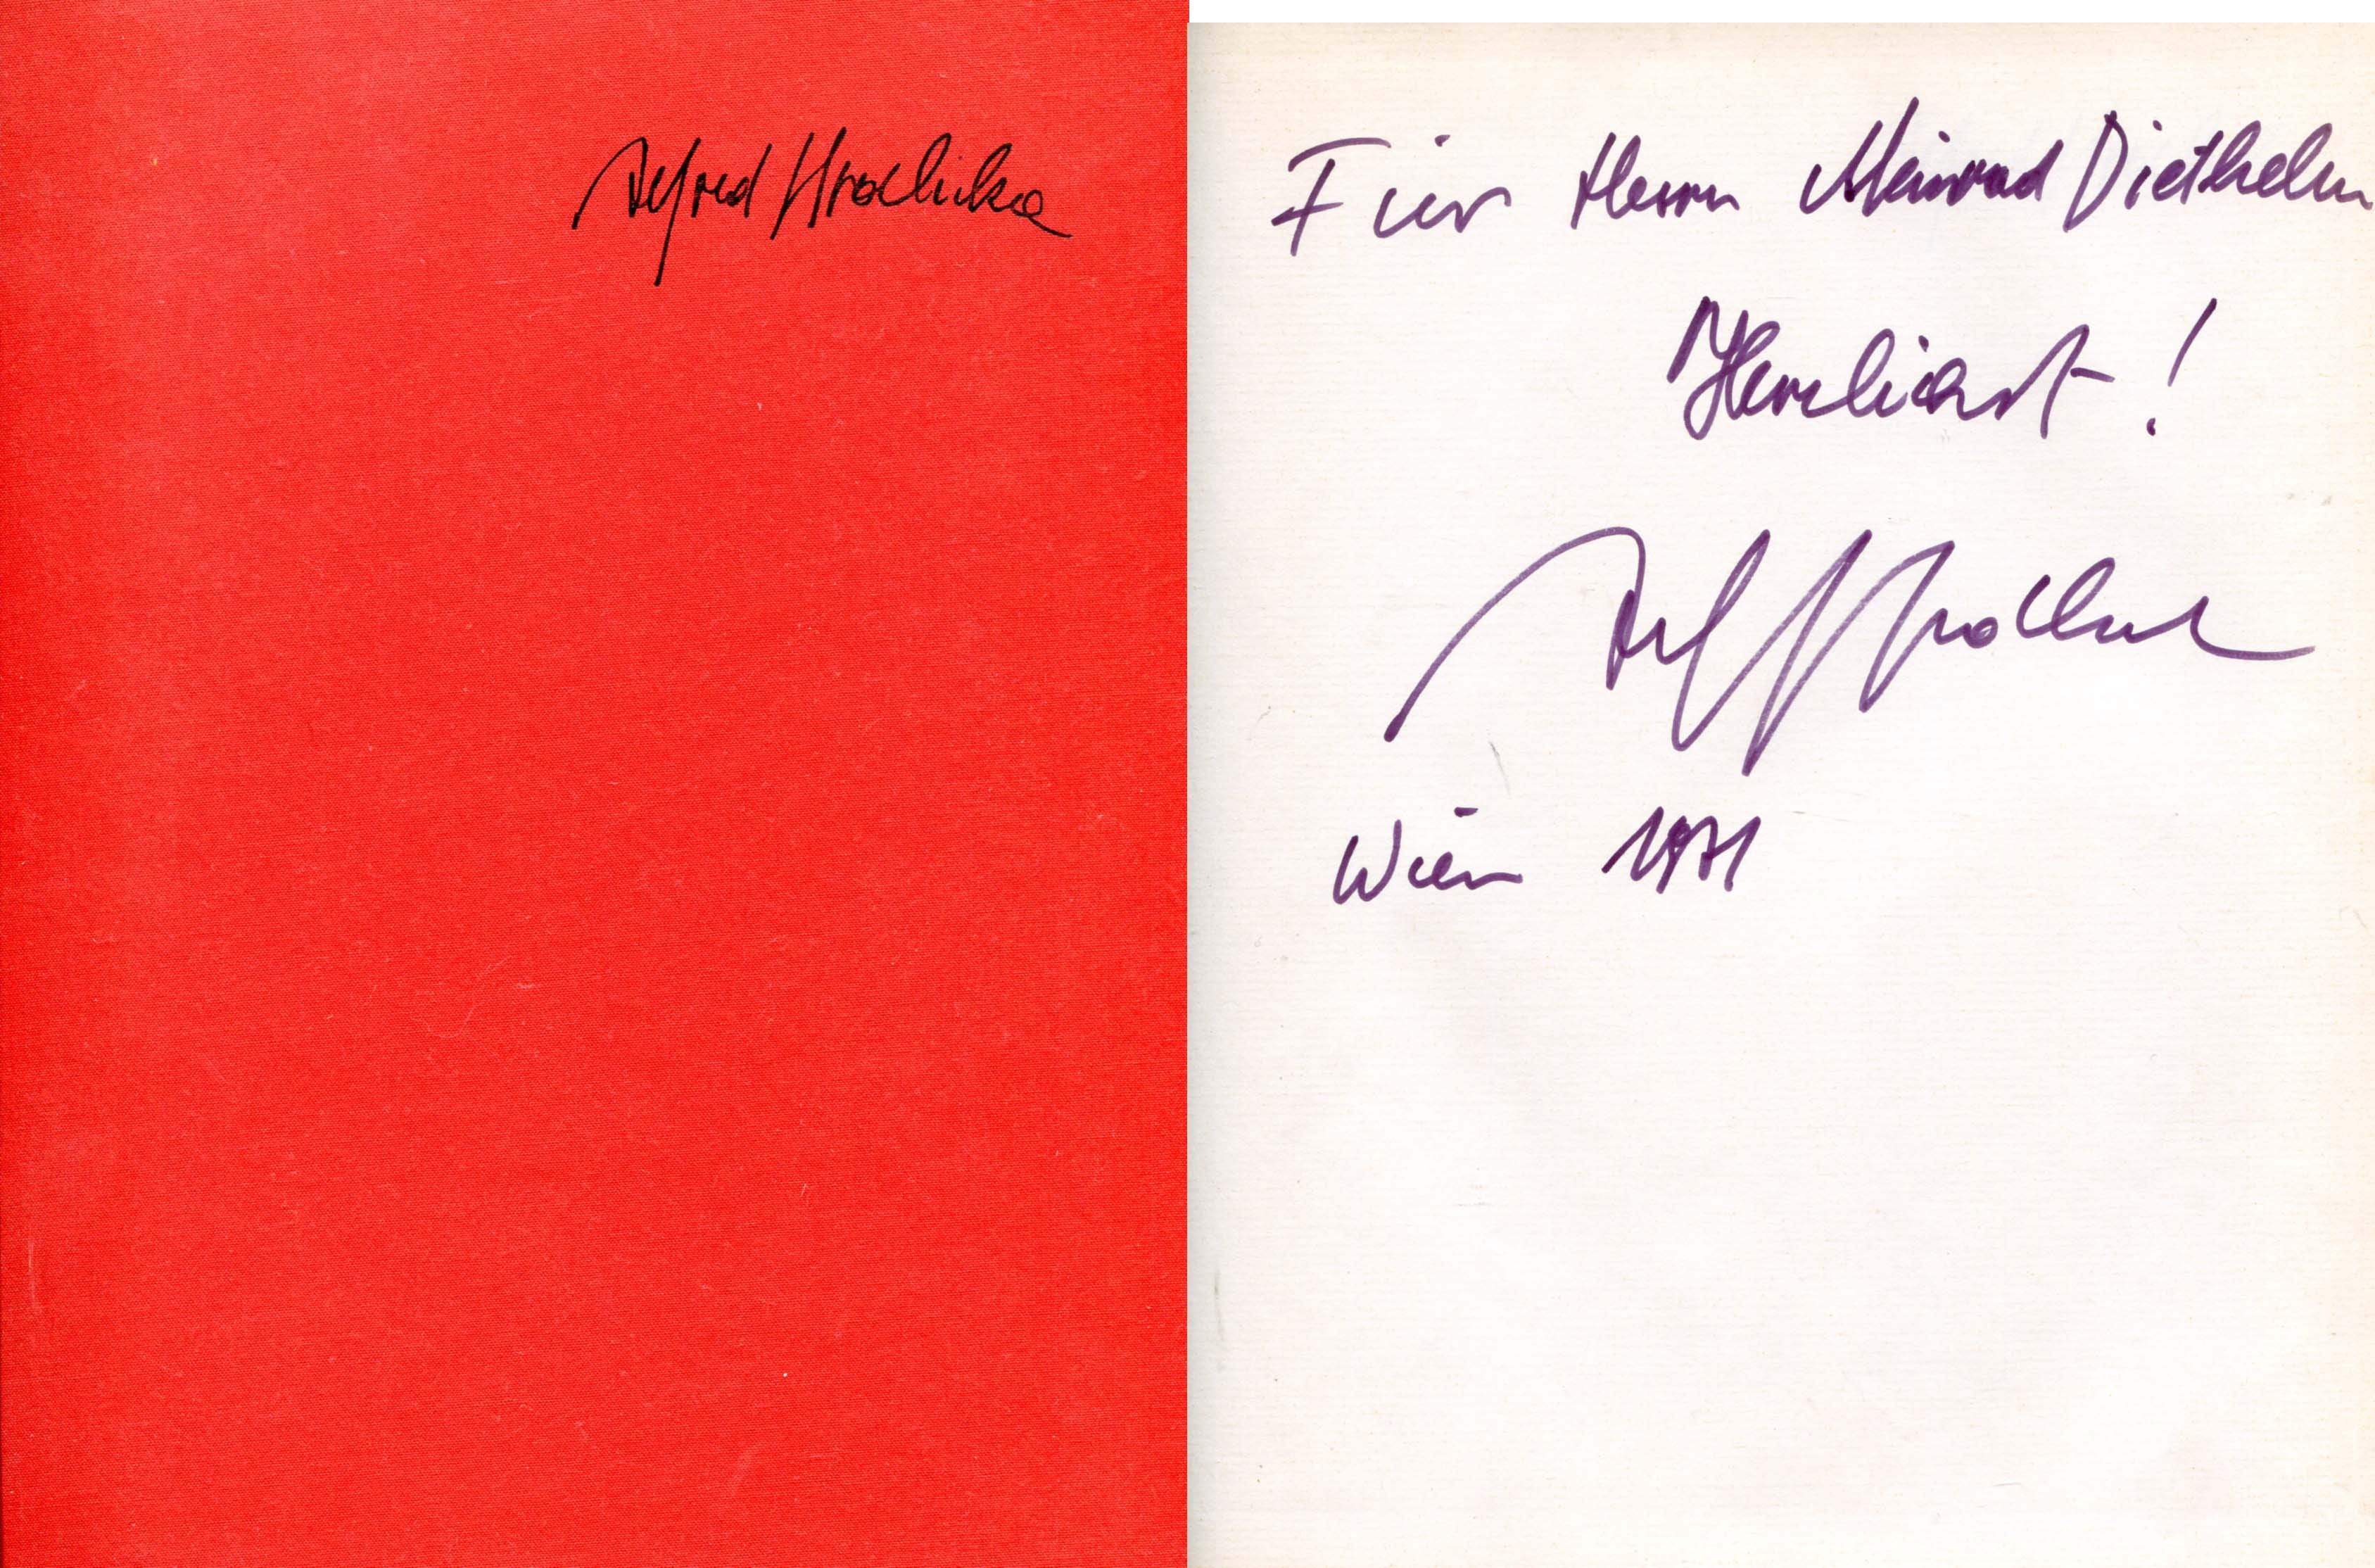 Alfred Hrdlicka
Für Herrn Meinrad Diethelm
Herzlichst!
Alf Hrdlicka
Wien 1971